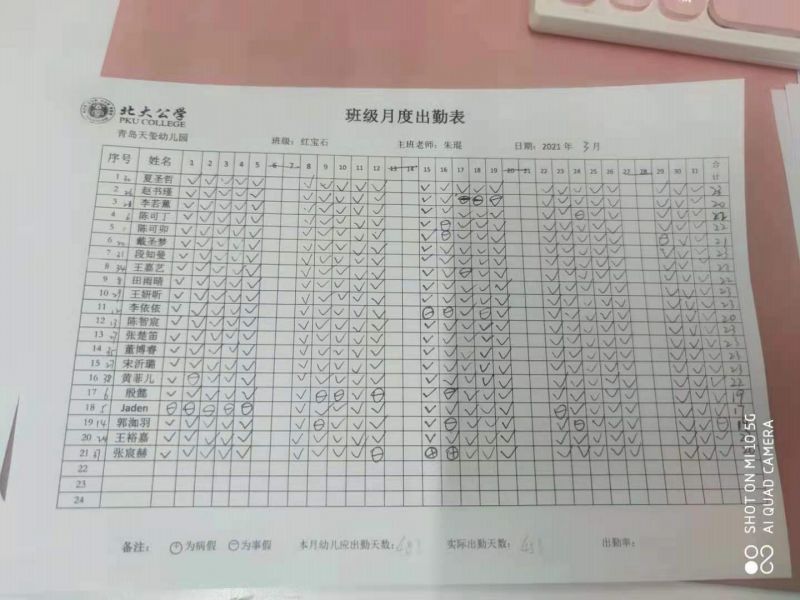 北大公学
PKU COLLEGE
青岛天玺幼儿园
班级月度出勤表
班级：红宝石 主班老师：朱琨 日期：2021 年 3 月
序号 姓名 1 2 3 4 5 6 7 8 9 10 11 12 13 14 15 16 17 18 19 20 21 22 23 24 25 26 27 28 29 30 31 合计
1 夏圣哲 23
2 赵书瑾 23
3 李若薰 20
4 陈可丁 22
5 陈可卯 22
6 戴圣梦 21
7 段知曼 23
8 王嘉艺 22
9 田雨晴 23
10 王妍昕 23
11 李依依 20
12 陈智宸 23
13 张楚笛 23
14 董博睿 23
15 宋沂璐 23
16 黄菲儿 22
17 殷懿 19
18 Jaden 17
19 郭洳羽
20 王裕嘉
21 张宸赫
22
23
24
备注： 为病假 为事假 本月幼儿应出勤天数：483 实际出勤天数： 出勤率：
SHOT ON MI 10 5G
AI QUAD CAMERA